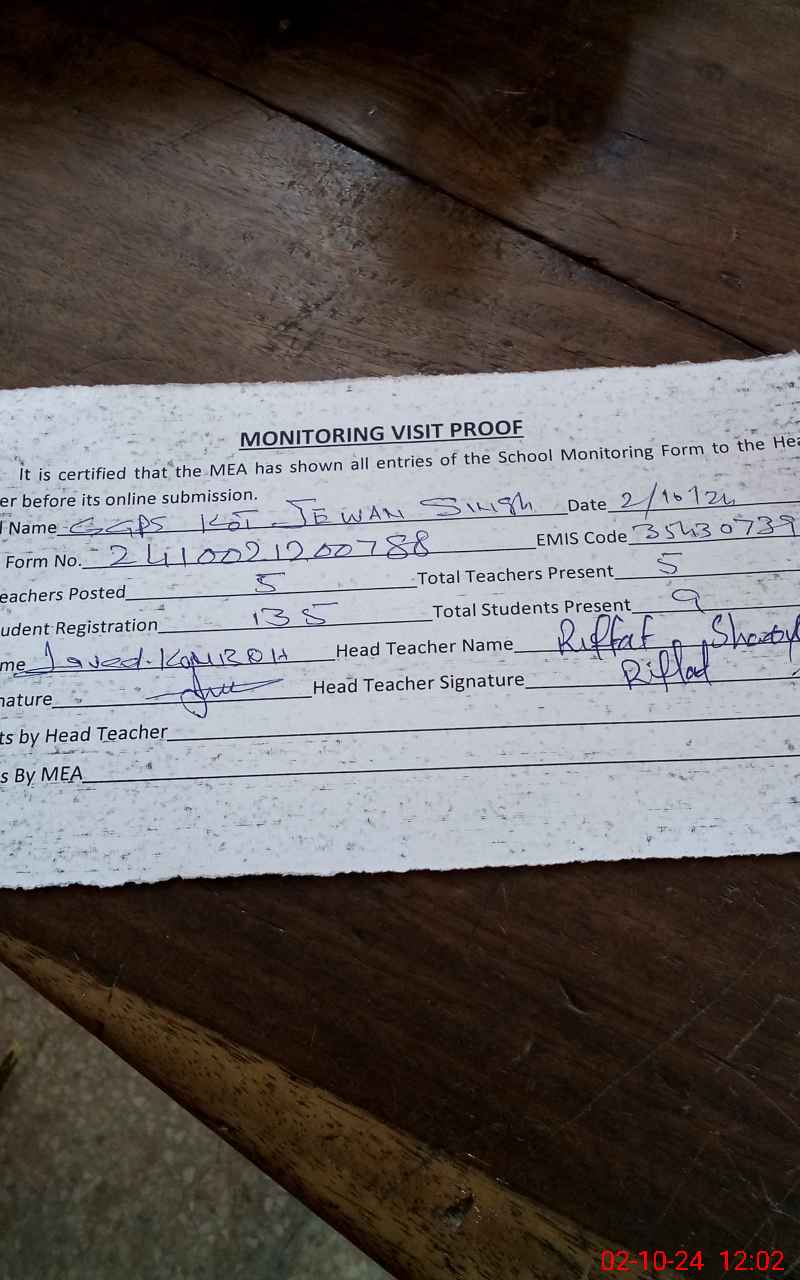 MONITORING VISIT PROOF
It is certified that the MEA has shown all entries of the School Monitoring Form to the Hea
er before its online submission.
l Name GGPS KOT JEWAN SINGh Date 2/10/24
Form No. 2410021200788 EMIS Code 35430739
eachers Posted 5 Total Teachers Present 5
udent Registration 135 Total Students Present 9
me Javed KAMBOH Head Teacher Name Riffat
nature Head Teacher Signature Riffat
ts by Head Teacher
s By MEA
02-10-24 12:02